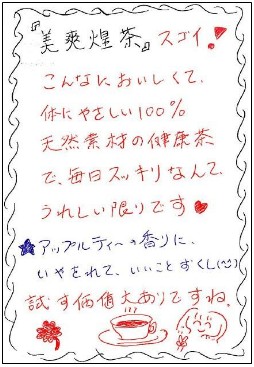 『美爽煌茶』スゴイ!
こんなにおいしくて、
体にやさしい100%
天然素材の健康茶
で、毎日スッキリなんて、
うれしい限りです♥
★アップルティーの香りに、
いやされて、いいことずくし(^^)
試す価値大ありですね。